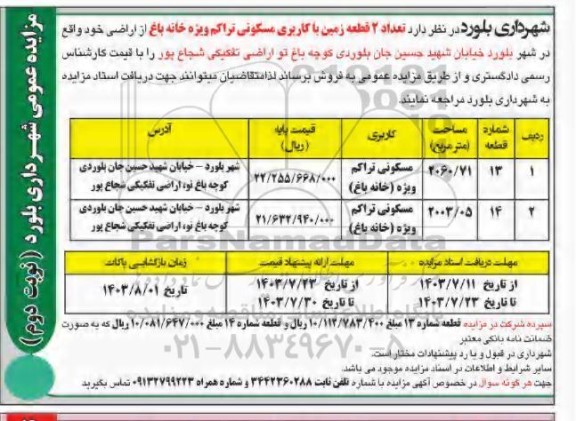 مزایده عمومی شهرداری بلورد (نوبت دوم)
شهرداری بلورد در نظر دارد تعداد ۲ قطعه زمین با کاربری مسکونی تراکم ویژه خانه باغ از اراضی خود واقع
در شهر بلورد خیابان شهید حسین جان بلوردی کوچه باغ نو اراضی تفکیکی شجاع پور را با قیمت کارشناس
رسمی دادگستری و از طریق مزایده عمومی به فروش برساند لذا متقاضیان میتوانند جهت دریافت اسناد مزایده
به شهرداری بلورد مراجعه نمایند.
ردیف شماره قطعه مساحت (متر مربع) کاربری قیمت پایه (ریال) آدرس
۱ ۱۳ ۲۰۶۰/۷۱ مسکونی تراکم ویژه (خانه باغ) ۲۲/۲۵۵/۶۶۸/۰۰۰ شهر بلورد – خیابان شهید حسین جان بلوردی کوچه باغ نو، اراضی تفکیکی شجاع پور
۲ ۱۴ ۲۰۰۳/۰۵ مسکونی تراکم ویژه (خانه باغ) ۲۱/۶۳۲/۹۴۰/۰۰۰ شهر بلورد – خیابان شهید حسین جان بلوردی کوچه باغ نو، اراضی تفکیکی شجاع پور
مهلت دریافت اسناد مزایده مهلت ارائه پیشنهاد قیمت زمان بازگشایی پاکات
از تاریخ ۱۴۰۳/۷/۱۱ از تاریخ ۱۴۰۳/۷/۲۳ تاریخ ۱۴۰۳/۸/۰۱
تا تاریخ ۱۴۰۳/۷/۲۳ تا تاریخ ۱۴۰۳/۷/۳۰
سپرده شرکت در مزایده قطعه شماره ۱۳ مبلغ ۱۰/۱۱۲/۷۸۳/۴۰۰ ریال و قطعه شماره ۱۴ مبلغ ۱۰/۰۸۱/۶۴۷/۰۰۰ ریال که به صورت
ضمانت نامه بانکی معتبر
شهرداری در قبول و یا رد پیشنهادات مختار است.
سایر شرایط و اطلاعات در اسناد مزایده موجود می باشد.
جهت هر گونه سوال در خصوص آگهی مزایده با شماره تلفن ثابت ۳۴۴۲۳۶۰۲۸۸ و شماره همراه ۰۹۱۳۲۷۹۹۲۲۳ تماس بگیرید
ParsNamadData
۰۲۱-۸۸۳۴۹۶۷۰-۵